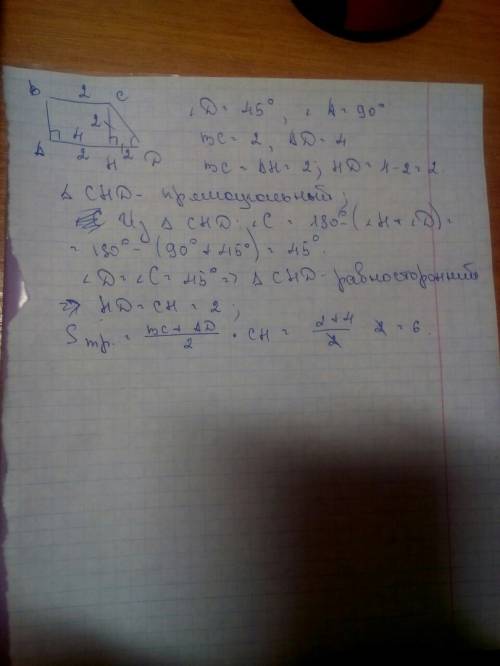 B 2 C
2
A 4 2 H 2 D
∠D = 45°, ∠A = 90°
BC = 2, AD = 4
BC = AH = 2; HD = 4-2 = 2
Δ CHD - прямоугольный;
Из Δ CHD: ∠C = 180°-(∠H+∠D) =
= 180° - (90° + 45°) = 45°.
∠D = ∠C = 45° ⇒ Δ CHD - равносторонний
⇒ HD = CH = 2;
Sтр. = (BC + AD)/2 · CH = (2+4)/2 · 2 = 6.